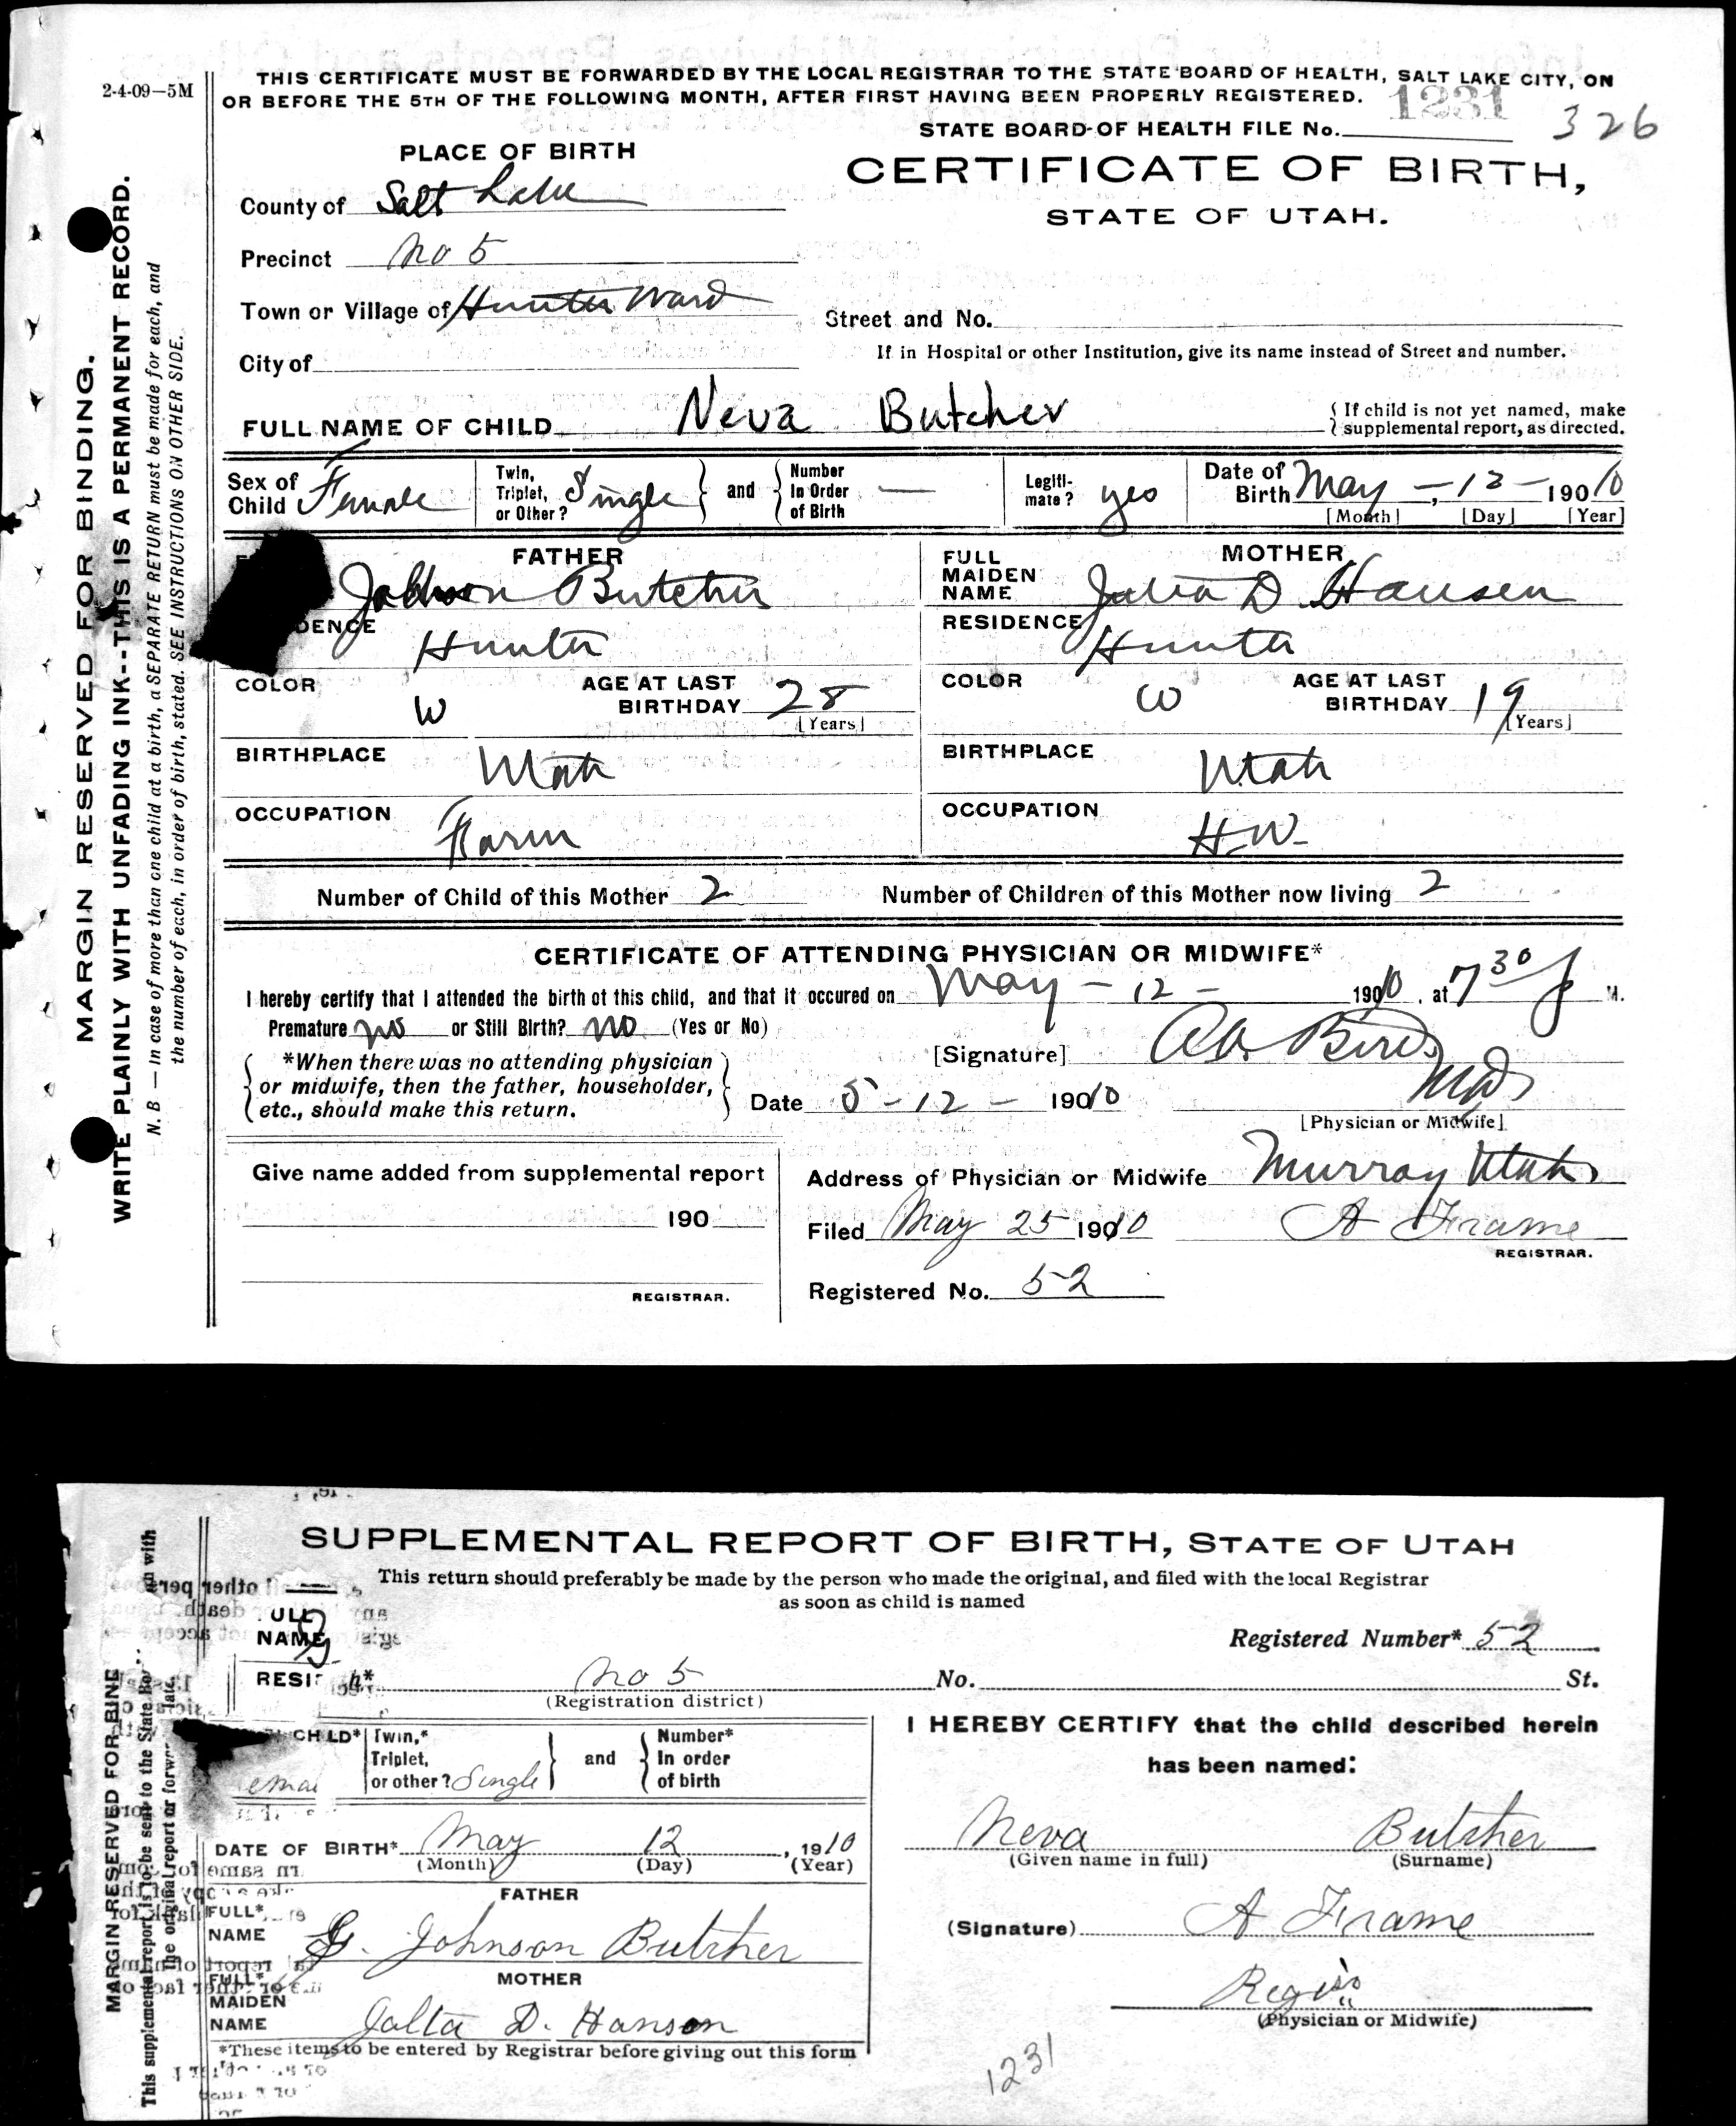 2-4-09—5M
THIS CERTIFICATE MUST BE FORWARDED BY THE LOCAL REGISTRAR TO THE STATE BOARD OF HEALTH, SALT LAKE CITY, ON
OR BEFORE THE 5TH OF THE FOLLOWING MONTH, AFTER FIRST HAVING BEEN PROPERLY REGISTERED.
1231
STATE BOARD OF HEALTH FILE No. 326
PLACE OF BIRTH
CERTIFICATE OF BIRTH,
STATE OF UTAH.
County of Salt Lake
Precinct No 5
Town or Village of Hunter Ward
Street and No.
If in Hospital or other Institution, give its name instead of Street and number.
City of
FULL NAME OF CHILD Neva Butcher
If child is not yet named, make
supplemental report, as directed.
Sex of Child Female
Twin, Triplet, or Other? Single and Number In Order of Birth —
Legiti-mate? yes
Date of Birth May - 12 - 1910
[Month] [Day] [Year]
FATHER
Johnson Butcher
RESIDENCE
Hunter
COLOR W
AGE AT LAST BIRTHDAY 28
[Years]
BIRTHPLACE Utah
OCCUPATION Farm
MOTHER
FULL MAIDEN NAME D. Hansen
RESIDENCE Hunter
COLOR W
AGE AT LAST BIRTHDAY 19
[Years]
BIRTHPLACE Utah
OCCUPATION H.W.
Number of Child of this Mother 2
Number of Children of this Mother now living 2
CERTIFICATE OF ATTENDING PHYSICIAN OR MIDWIFE*
I hereby certify that I attended the birth of this child, and that it occured on May - 12 - 1910, at 7 30 P M.
Premature no or Still Birth? no (Yes or No)
*When there was no attending physician
or midwife, then the father, householder,
etc., should make this return.
[Signature] Bird
MD
[Physician or Midwife]
Date 5 - 12 - 1910
Give name added from supplemental report
190
REGISTRAR.
Address of Physician or Midwife Murray Utah
Filed May 25 1910 A Frame
REGISTRAR.
Registered No. 52
MARGIN RESERVED FOR BINDING.
WRITE PLAINLY WITH UNFADING INK--THIS IS A PERMANENT RECORD.
N. B — In case of more than one child at a birth, a SEPARATE RETURN must be made for each, and
the number of each, in order of birth, stated. SEE INSTRUCTIONS ON OTHER SIDE.
SUPPLEMENTAL REPORT OF BIRTH, STATE OF UTAH
This return should preferably be made by the person who made the original, and filed with the local Registrar
as soon as child is named
NAME
Registered Number* 52
No 5
(Registration district)
No. St.
CHILD*
Twin,* Triplet, or other? Single and Number* In order of birth
DATE OF BIRTH* May 12, 1910
(Month) (Day) (Year)
FATHER
FULL* NAME G. Johnson Butcher
MOTHER
FULL* MAIDEN NAME Jalta D. Hanson
*These items to be entered by Registrar before giving out this form
I HEREBY CERTIFY that the child described herein
has been named:
Neva Butcher
(Given name in full) (Surname)
(Signature) A Frame
(Physician or Midwife)
1231
MARGIN RESERVED FOR BIND